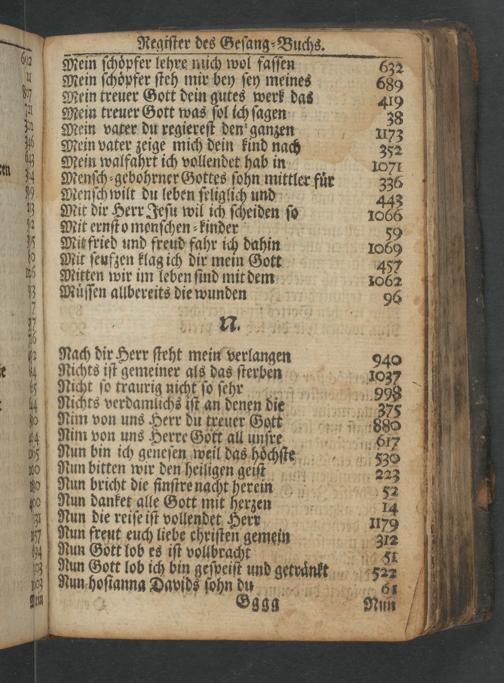 Register des Gesang-Buchs.
Mein schöpfer lehre mich wol fassen 632
Mein schöpfer steh mir bey sey meines 689
Mein treuer Gott dein gutes werk das 419
Mein treuer Gott was sol ich sagen 38
Mein vater du regierest den ganzen 1173
Mein vater zeige mich dein kind nach 352
Mein walfahrt ich vollendet hab in 1071
Mensch-gebohrner Gottes sohn mittler für 336
Mensch wilt du leben seliglich und 443
Mit dir Herr Jesu wil ich scheiden so 1066
Mit ernst o menschen-kinder 59
Mit fried und freud fahr ich dahin 1069
Mit seufzen klag ich dir mein Gott 457
Mitten wir im leben sind mit dem 1062
Müssen allbereits die wunden 96
N.
Nach dir Herr steht mein verlangen 940
Nichts ist gemeiner als das sterben 1037
Nicht so traurig nicht so sehr 998
Nichts verdamlichs ist an denen die 375
Nim von uns Herr du treuer Gott 880
Nim von uns Herre Gott all unsre 617
Nun bin ich genesen weil das höchste 530
Nun bitten wir den heiligen geist 223
Nun bricht die finstre nacht herein 52
Nun danket alle Gott mit herzen 14
Nun die reise ist vollendet Herr 1179
Nun freut euch liebe christen gemein 312
Nun Gott lob es ist vollbracht 51
Nun Gott lob ich bin gespeist und getränkt 522
Nun hosianna Davids sohn du 61
Gggg Nun